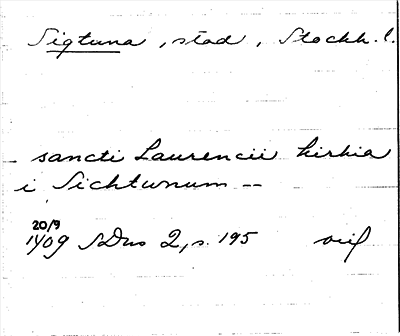 Sigtuna, stad, Stockh. l.
- sancti Laurencii kirkia
i Sichtunum --
20/9
1409 SDns 2, s. 195 orig